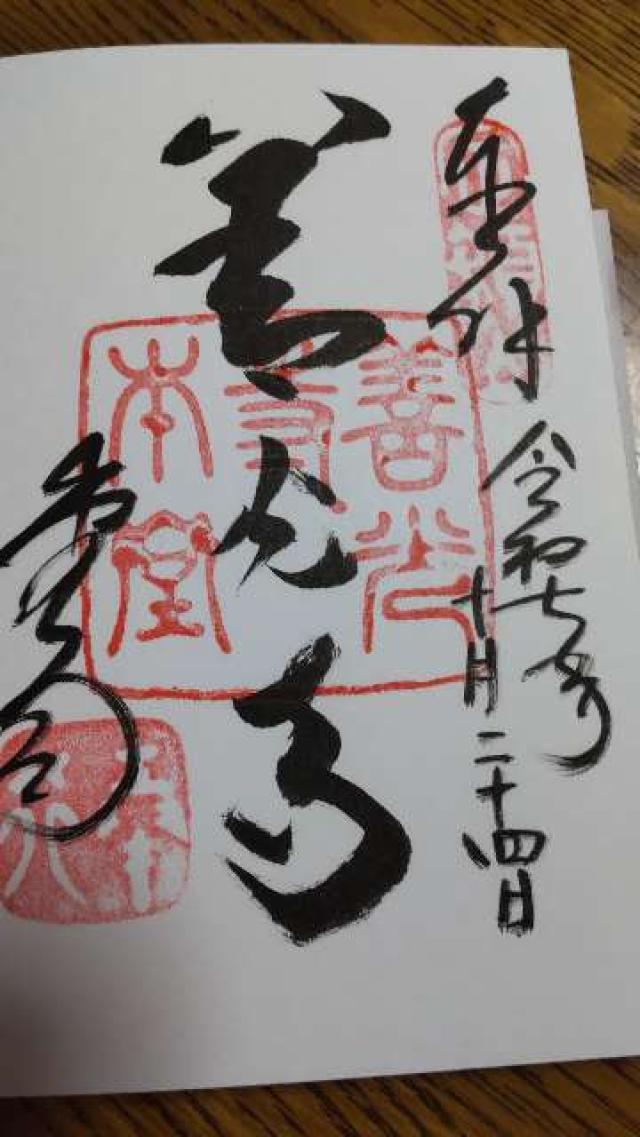 奉拝
令和七年
十月二十四日
善光寺
善光寺本堂